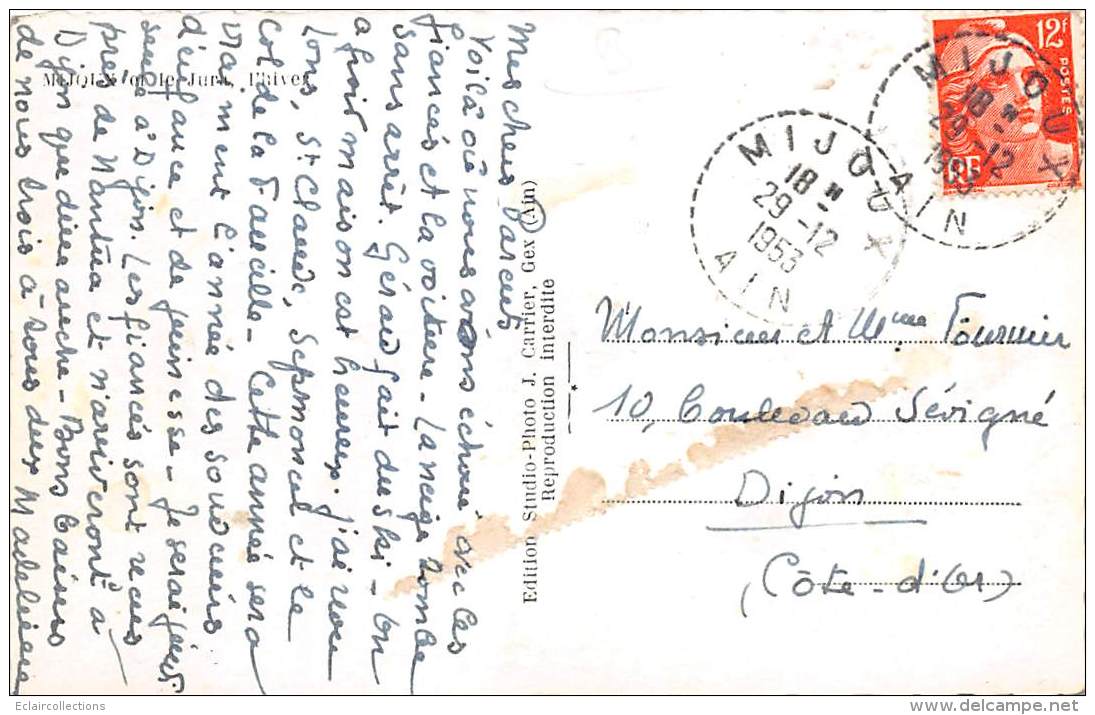 Mes chers Parents
Voilà où nous avons échoué avec les
fiancés et la voiture - La neige tombe
sans arrêt. Gérard fait du ski - On
a fini maison est heureux. j'ai revu
Lons, St Claude, Septmoncel et le
Col de la Faucille - Cette année sera
vraiment l'année des souvenirs
d'enfance et de jeunesse - Je serai jeudi
seule à Dijon. Les fiancés sont reçus
près de Nantua et n'arriveront à
Dijon que dimanche - Bons baisers
de nous trois à tous deux Madeleine
MIJOUX le Jura, l'hiver
Edition Studio-Photo J. Carrier, Gex (Ain)
Reproduction Interdite
12F
POSTES
RF
MIJOUX
18 H
29-12
1953
AIN
MIJOUX
18 H
29-12
1953
AIN
Monsieur et Mme Fournier
10, Boulevard Sévigné
Dijon
(Côte-d'Or)
Eclaircollections
delcampe.net